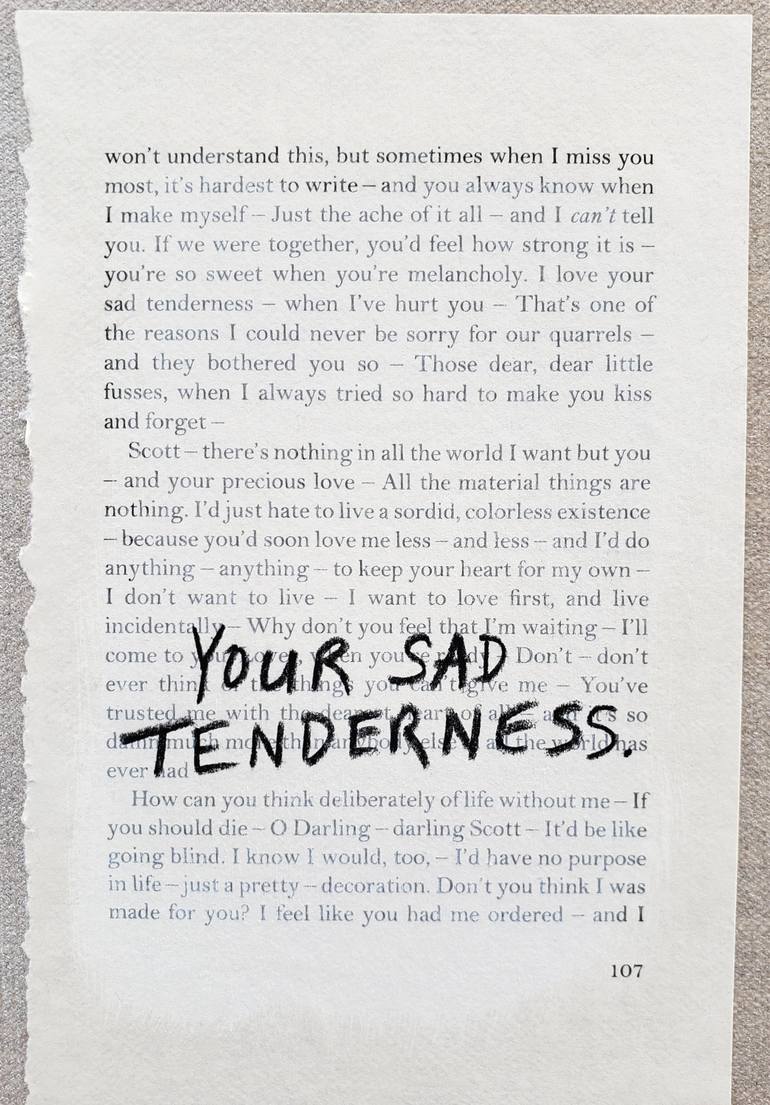 won't understand this, but sometimes when I miss you
most, it's hardest to write – and you always know when
I make myself – Just the ache of it all – and I can't tell
you. If we were together, you'd feel how strong it is –
you're so sweet when you're melancholy. I love your
sad tenderness – when I've hurt you – That's one of
the reasons I could never be sorry for our quarrels –
and they bothered you so – Those dear, dear little
fusses, when I always tried so hard to make you kiss
and forget –
Scott – there's nothing in all the world I want but you
– and your precious love – All the material things are
nothing. I'd just hate to live a sordid, colorless existence
– because you'd soon love me less – and less – and I'd do
anything – anything – to keep your heart for my own –
I don't want to live – I want to love first, and live
incidentally – Why don't you feel that I'm waiting – I'll
come to you Don't – don't
YOUR SAD
ever think of the things you can't give me – You've
trusted me with the dearest heart of all – and it's so
TENDERNESS.
damn much more than anybody else in all the world has
ever had
How can you think deliberately of life without me – If
you should die – O Darling – darling Scott – It'd be like
going blind. I know I would, too, – I'd have no purpose
in life – just a pretty – decoration. Don't you think I was
made for you? I feel like you had me ordered – and I
107